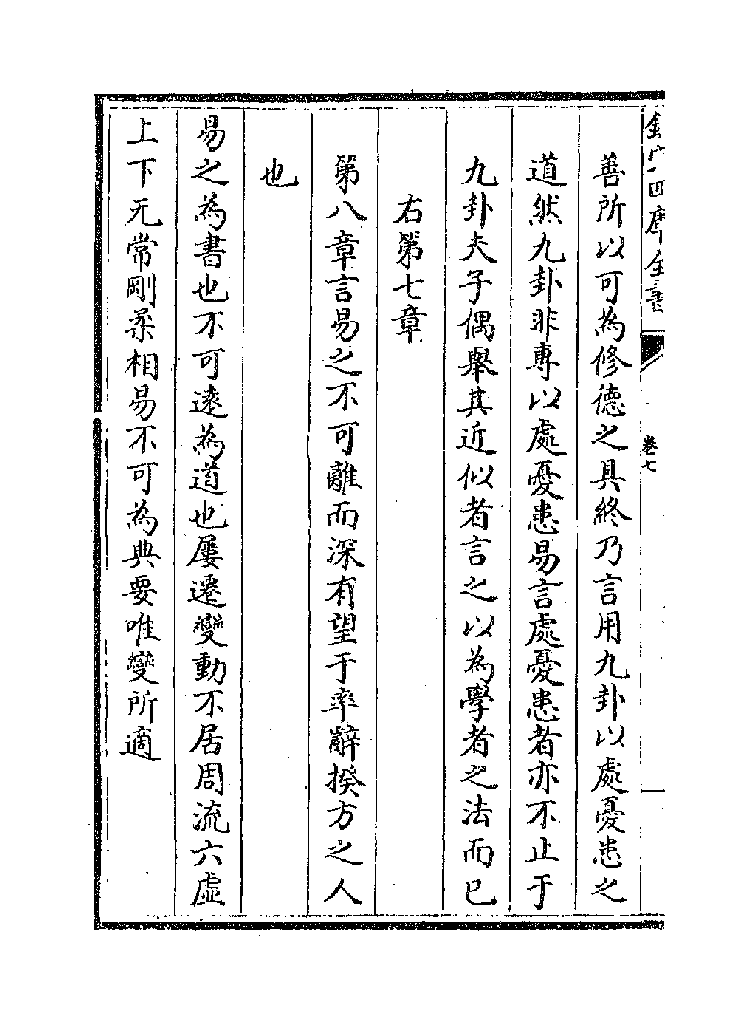 欽定四庫全書
卷七
善所以可為修德之具終乃言用九卦以處憂患之
道然九卦非專以處憂患易言處憂患者亦不止于
九卦夫子偶舉其近似者言之以為學者之法而已
右第七章
第八章言易之不可離而深有望于率辭揆方之人
也
易之為書也不可遠為道也屢遷變動不居周流六虛
上下无常剛柔相易不可為典要唯變所適